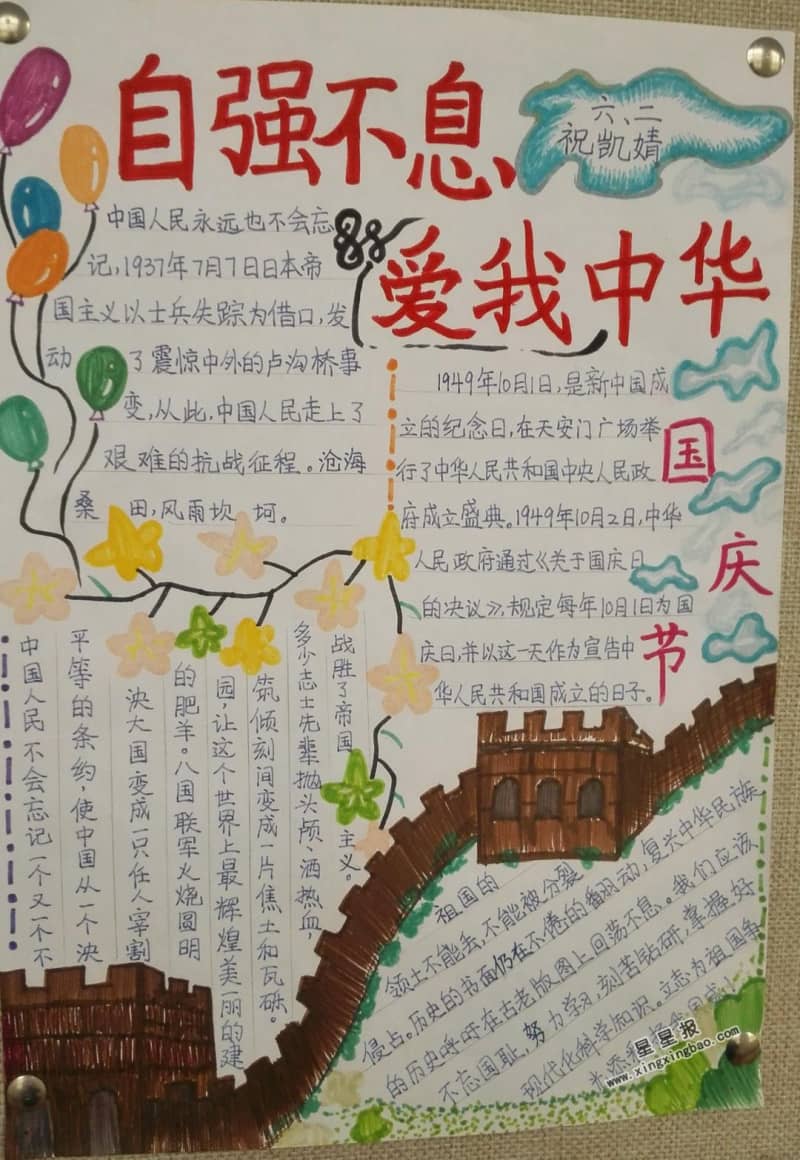 自强不息
六、二
祝凯婧
爱我中华
中国人民永远也不会忘
记，1937年7月7日日本帝
国主义以士兵失踪为借口，发
动了震惊中外的卢沟桥事
变，从此，中国人民走上了
艰难的抗战征程。沧海
桑田，风雨坎坷。
国庆节
1949年10月1日，是新中国成
立的纪念日，在天安门广场举
行了中华人民共和国中央人民政
府成立盛典。1949年10月2日，中华
人民政府通过《关于国庆日
的决议》，规定每年10月1日为国
庆日，并以这一天作为宣告中
华人民共和国成立的日子。
中国人民不会忘记一个又一个不
平等的条约，使中国从一个泱
泱大国变成一只任人宰割
的肥羊。八国联军火烧圆明
园，让这个世界上最辉煌美丽的建
筑倾刻间变成一片焦土和瓦砾。
多少志士先辈抛头颅、洒热血，
战胜了帝国主义。
祖国的
领土不能丢，不能被分裂
侵占。历史的书面仍在不倦的翻动，复兴中华民族
的历史呼吁在古老版图上回荡不息。我们应该
不忘国耻，努力学习，刻苦钻研，掌握好
现代化科学知识。立志为祖国争
光添
星星报
www.xingxingbao.com